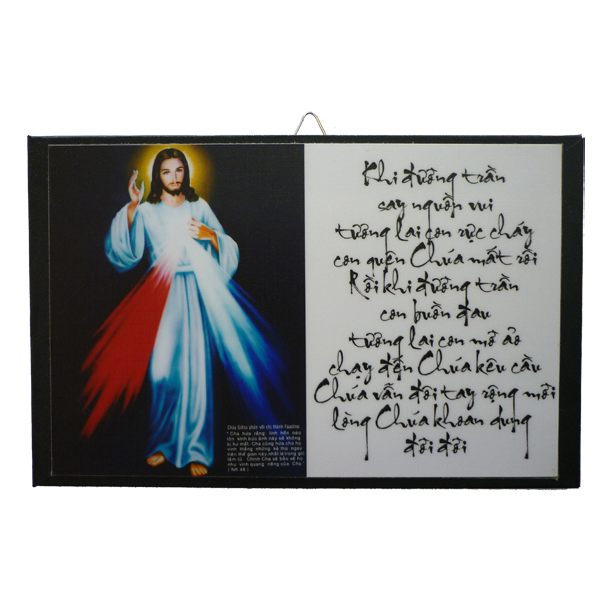 Chúa Giêsu phán với chị thánh Faustina:
" Cha hứa rằng: linh hồn nào
tôn kính bức ảnh này sẽ không
bị hư mất. Cha cũng hứa cho họ
vinh thắng những kẻ thù ngay
trên thế gian này, nhất là trong giờ
lâm tử. Chính Cha sẽ bảo vệ họ
như vinh quang riêng của Cha
( NK 48 )
Khi đường trần
say nguồn vui
tương lai con rực cháy
con quên Chúa mất rồi
Rồi khi đường trần
con buồn đau
tương lai con mờ ảo
chạy đến Chúa kêu cầu
Chúa vẫn đôi tay rộng mời
lòng Chúa khoan dung
đời đời